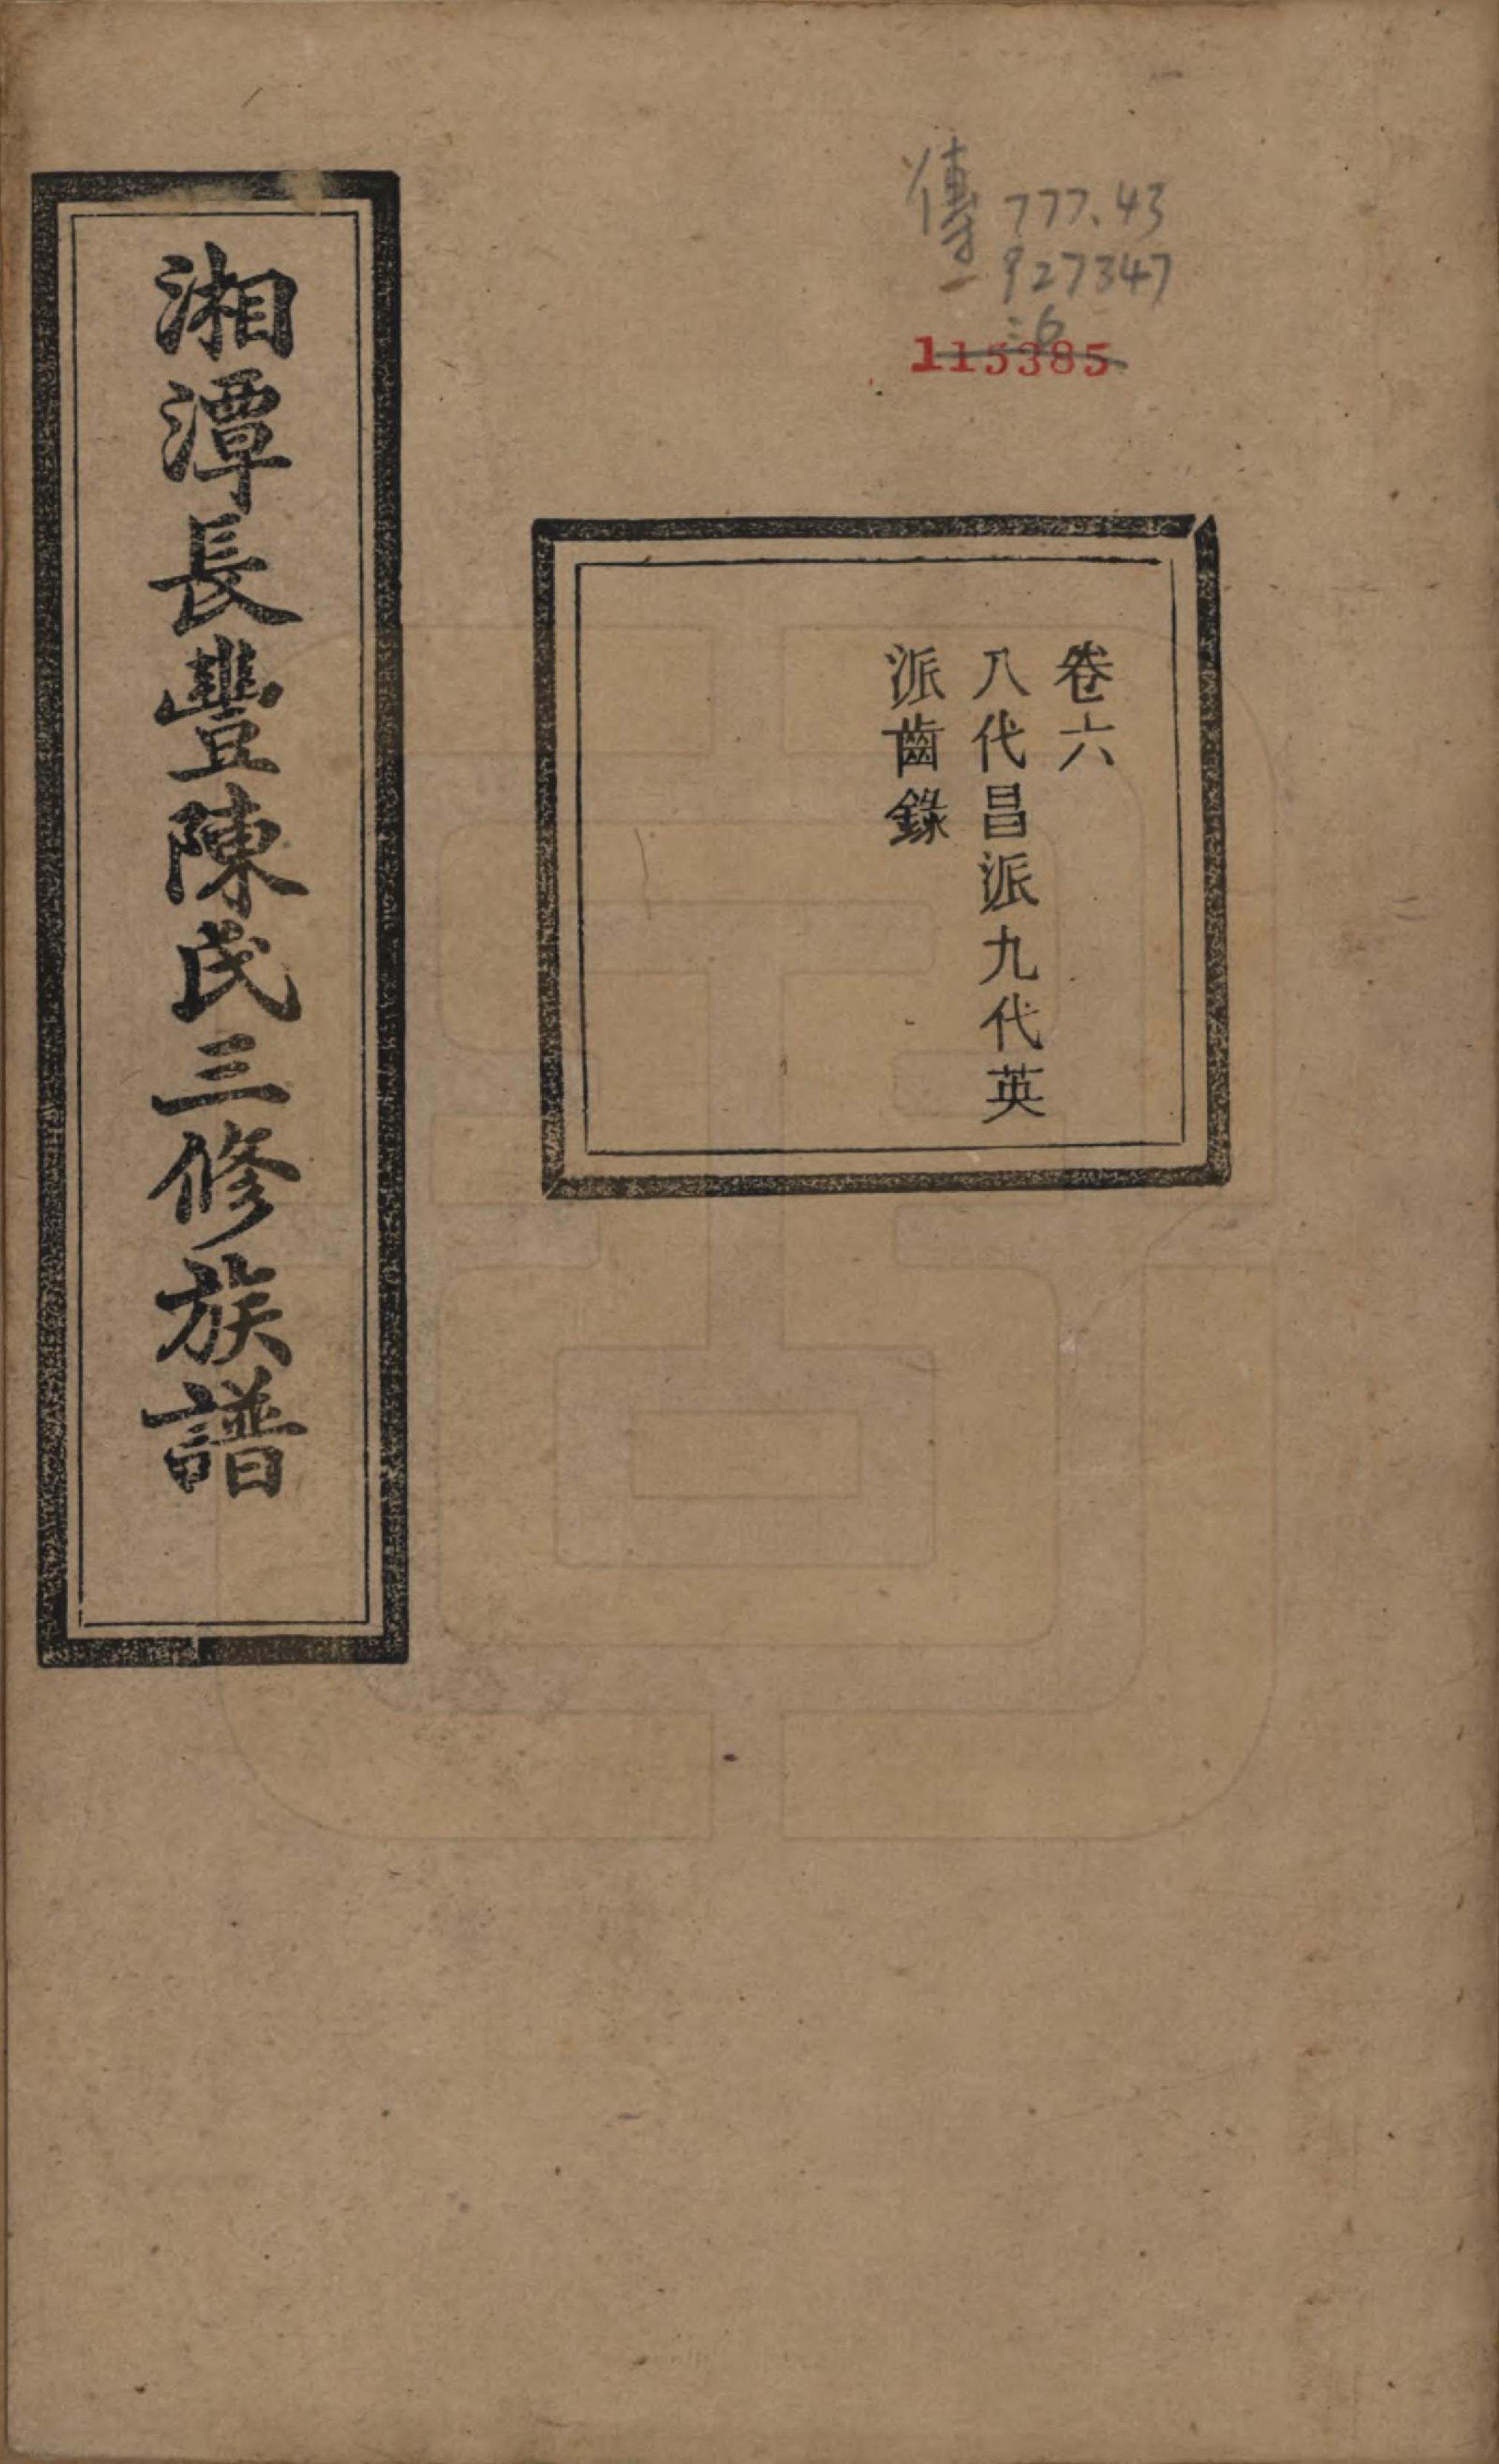 湘潭長豐陳氏三修族譜
卷六
八代昌派九代英
派齒錄
傳 777.43
一 927347
:6
115385